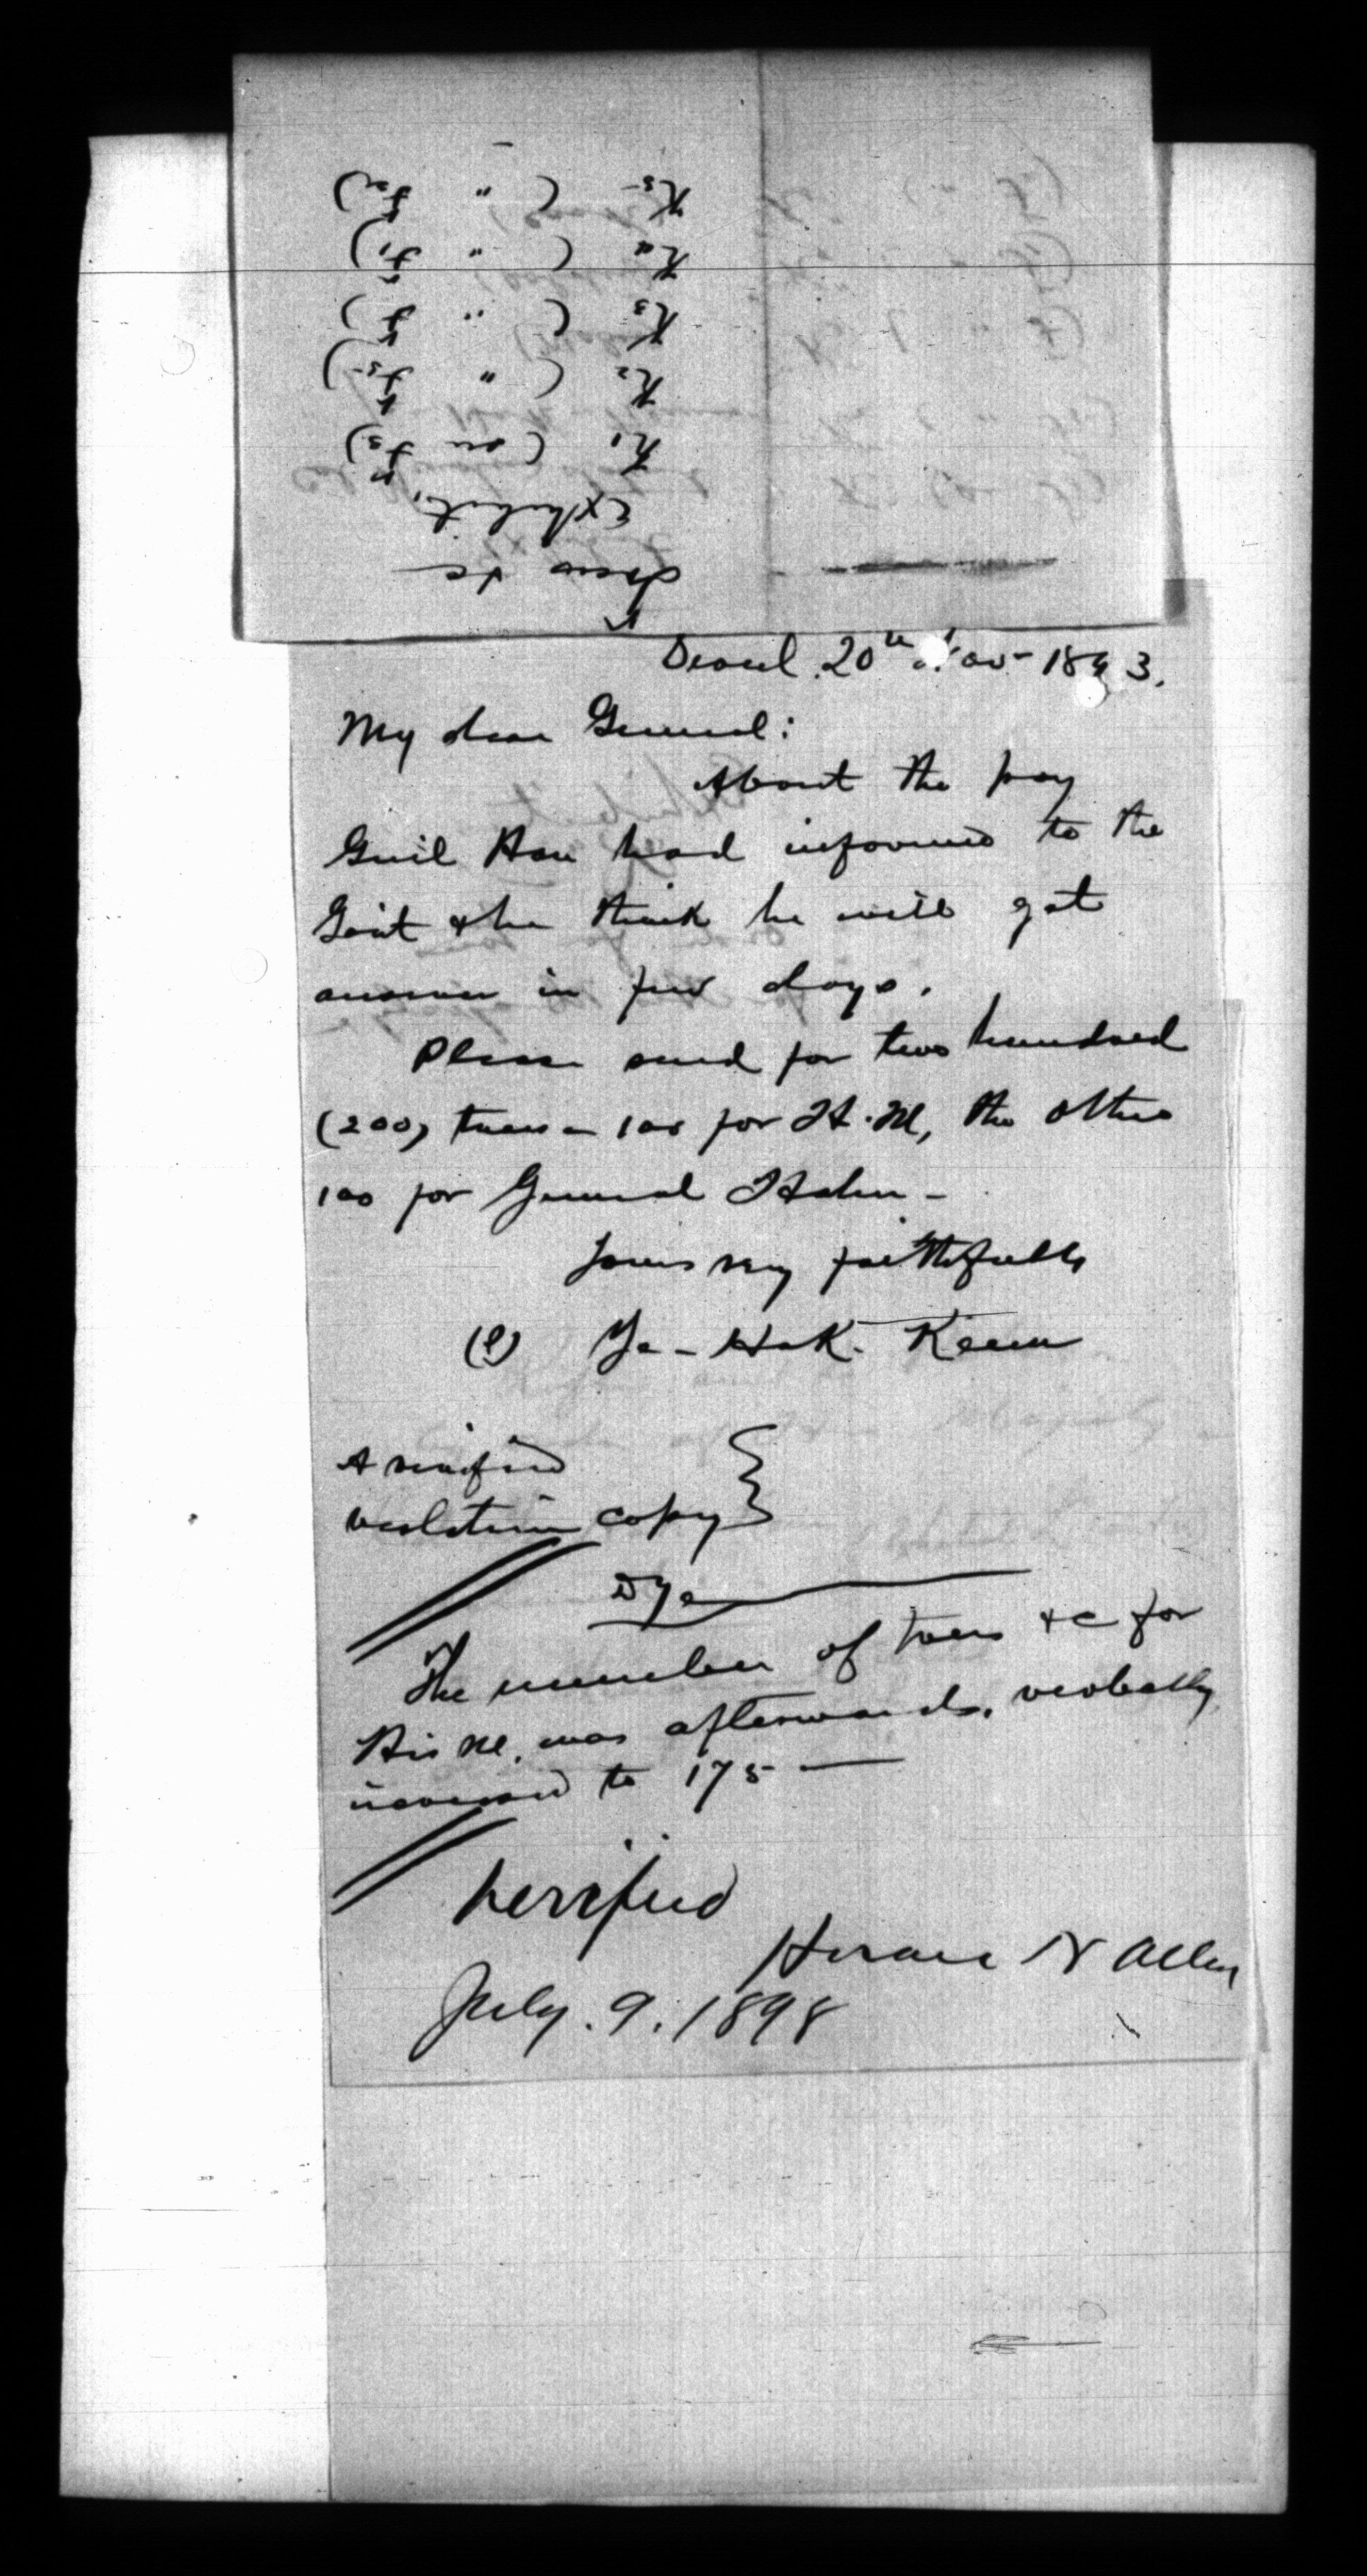 Trees &c
Exhibit,
K1 ( on J3)
K2 ( " J5)
K3 ( " J)
K4 ( " J1)
K5 ( " J2)
Seoul 20th Nov 1893.
My dear General:
About the pay
Genl Han had informed to the
Gov't & he think he will get
answer in few days.
Please send for two hundred
(200) trees - 100 for H.M, the other
100 for General Hahn -
Yours very faithfully
(S) Ye-Hak. Keem
A verified
verbatim copy
Dye
The number of trees &c for
His M. was afterwards, verbally
increased to 175 —
Verrified
Horace N Allen
July. 9. 1898